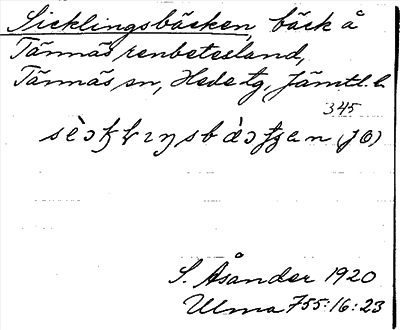 Sicklingsbäcken, bäck å
Tännäs renbetesland,
Tännäs sn, Hede tg, Jämtl. l.
345
(JO)
S. Åsander 1920
Ulma 755:16:23